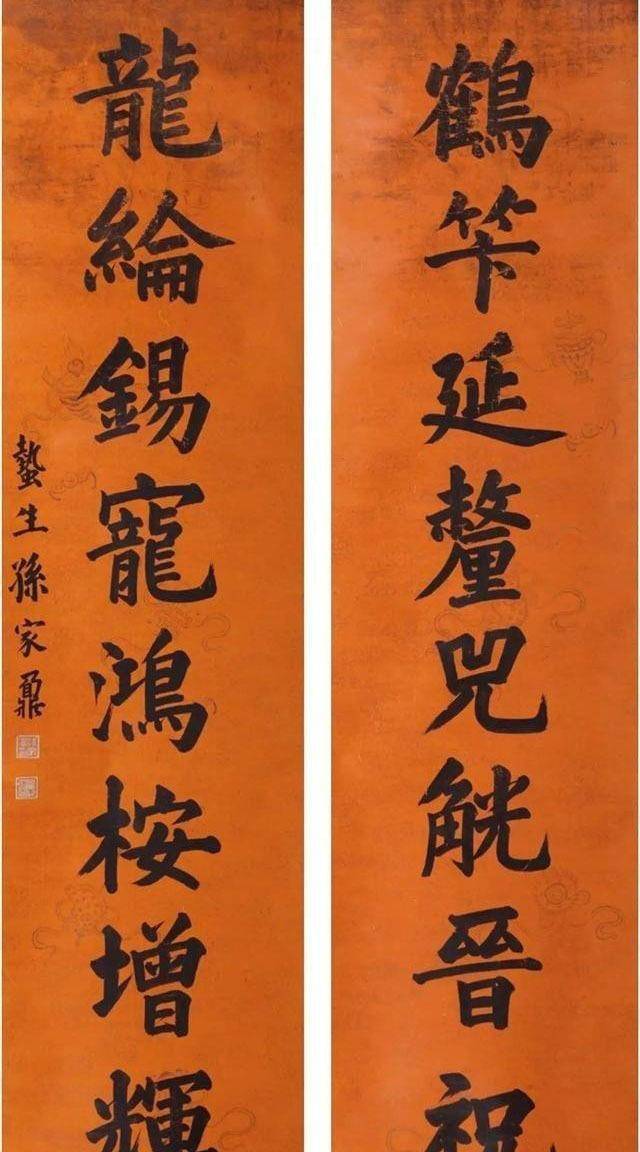 鶴笇延釐兕觥晉祝
龍綸錫寵鴻桉增輝
蟄生孫家鼐